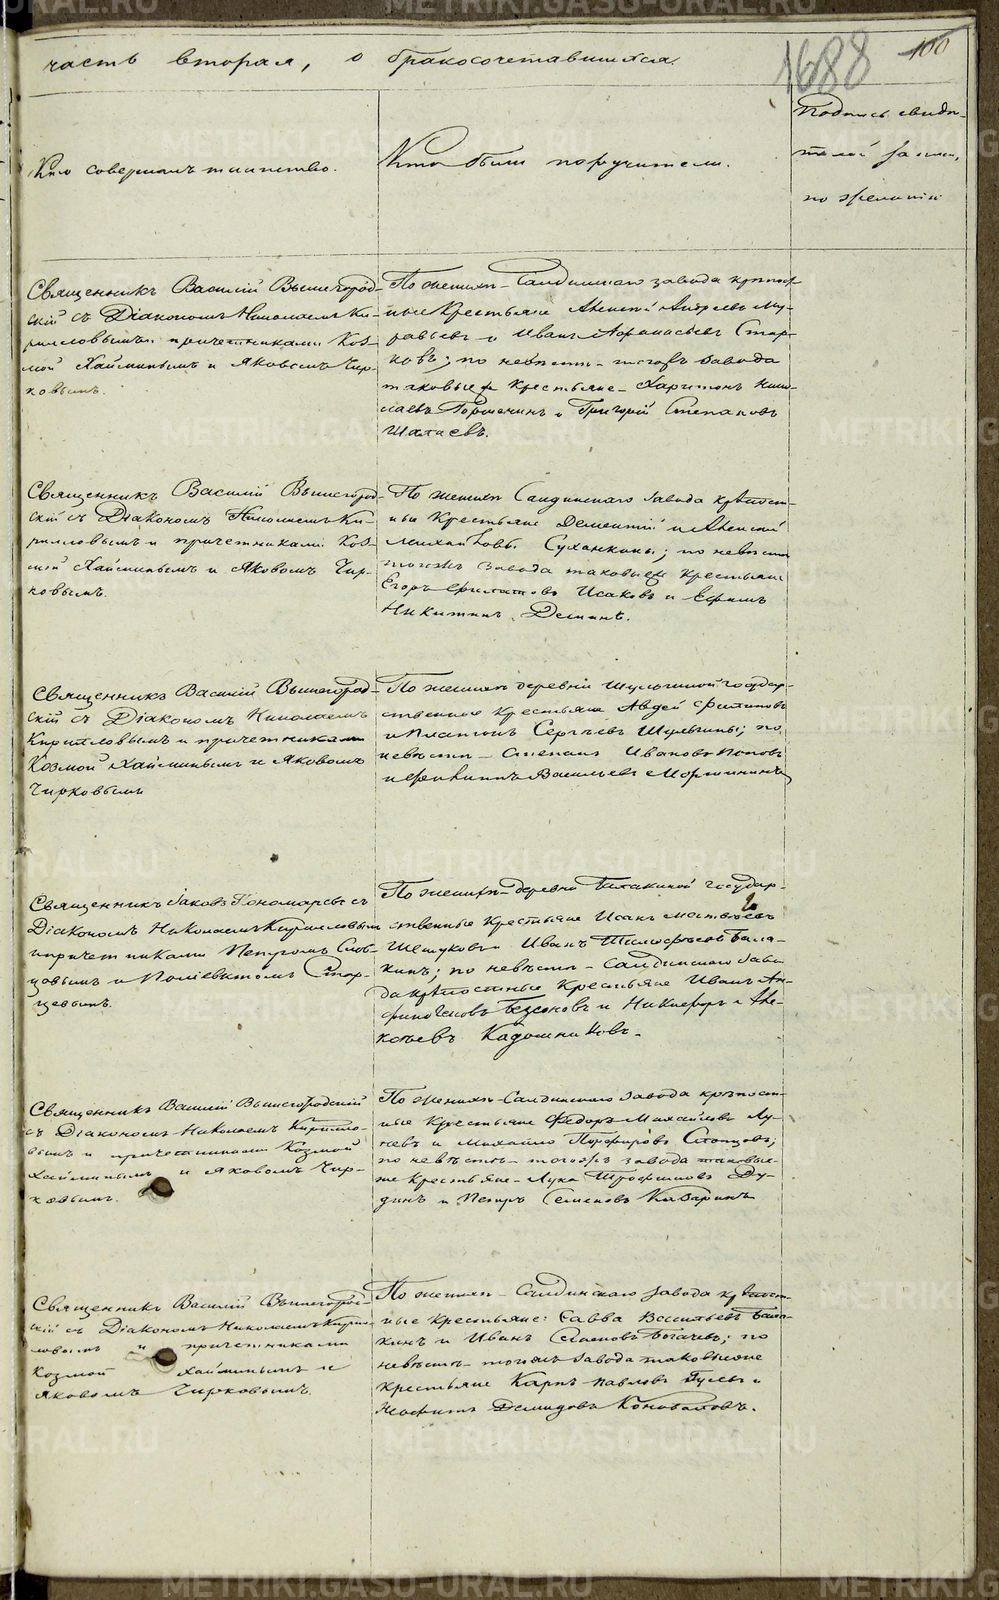 часть вторая, о бракосочетавшихся.
1688
100
Кто совершалъ таинство.
Кто были поручители.
Подпись свидѣ-
телей записи,
по желанію
Священникъ Василій Вышегород-
скій съ Діакономъ Николаемъ Ки-
рилловымъ и причетниками Коз-
мой Хайминымъ и Яковомъ Чир-
ковымъ.
По женихѣ - Салдинскаго завода крѣпост-
ные Крестьяне Алексѣй Андреевъ Му-
равьевъ и Иванъ Афанасьевъ Стар-
ковъ; по невѣстѣ - тогожъ завода
таковые же крестьяне - Харитонъ Нико-
лаевъ Горшенинъ и Григорій Степановъ
Шалаевъ.
Священникъ Василій Вышегород-
скій съ Діакономъ Николаемъ Ки-
рилловымъ и причетниками Коз-
мой Хайминымъ и Яковомъ Чир-
ковымъ.
По женихѣ Салдинскаго завода крѣпост-
ные Крестьяне Дементій и Алексѣй
Михайловы Суханкины; по невѣстѣ
тогожъ завода таковые же крестьяне
Егоръ Филатовъ Исаковъ и Ефимъ
Никитинъ Деминъ.
Священникъ Василій Вышегород-
скій съ Діакономъ Николаемъ
Кирилловымъ и причетниками
Козмой Хайминымъ и Яковомъ
Чирковымъ
По женихѣ деревни Шулгиной государ-
ственные крестьяне Авдей Филиповъ
и Платонъ Сергѣевъ Шулгины; по
невѣстѣ - Степанъ Ивановъ Поповъ
и Филиппъ Васильевъ Моршининъ
Священникъ Іаковъ Пономаревъ съ
Діакономъ Николаемъ Кирилловымъ
и причетниками Петромъ Слов-
цовымъ и Поліевктомъ Стар-
цевымъ.
По женихѣ - деревни Балакиной государ-
ственные крестьяне Исакъ Матвѣевъ
Шестуковъ и Иванъ Тимофѣевъ Бала-
кинъ; по невѣстѣ - Салдинскаго заво
да крѣпостные Крестьяне Иванъ Ан-
финогеновъ Безсоновъ и Никифоръ Але-
ксѣевъ Кадошниковъ.
Священникъ Василій Вышегородскій
съ Діакономъ Николаемъ Кирилло-
вымъ и причетниками Козмой
Хайминымъ и Яковомъ Чир-
ковымъ.
По женихѣ - Салдинскаго завода крѣпост-
ные Крестьяне Федоръ Михайловъ Лу-
невъ и Михайло Порфировъ Стопцовъ;
по невѣстѣ - тогожъ завода таковые-
же крестьяне - Лука Трофимовъ Ду-
динъ и Петръ Семеновъ Казаринъ
Священникъ Василій Вышегород-
скій съ Діакономъ Николаемъ Кирил-
ловымъ и причетниками
Козмой Хайминымъ и
Яковомъ Чирковымъ.
По женихѣ - Салдинскаго завода крѣпост-
ные крестьяне: Савва Васильевъ Бала-
кинъ и Иванъ Богачевъ; по
невѣстѣ - тогожъ завода таковые же
крестьяне Карпъ Павловъ Гусевъ и
Неофитъ Демидовъ Коноваловъ.